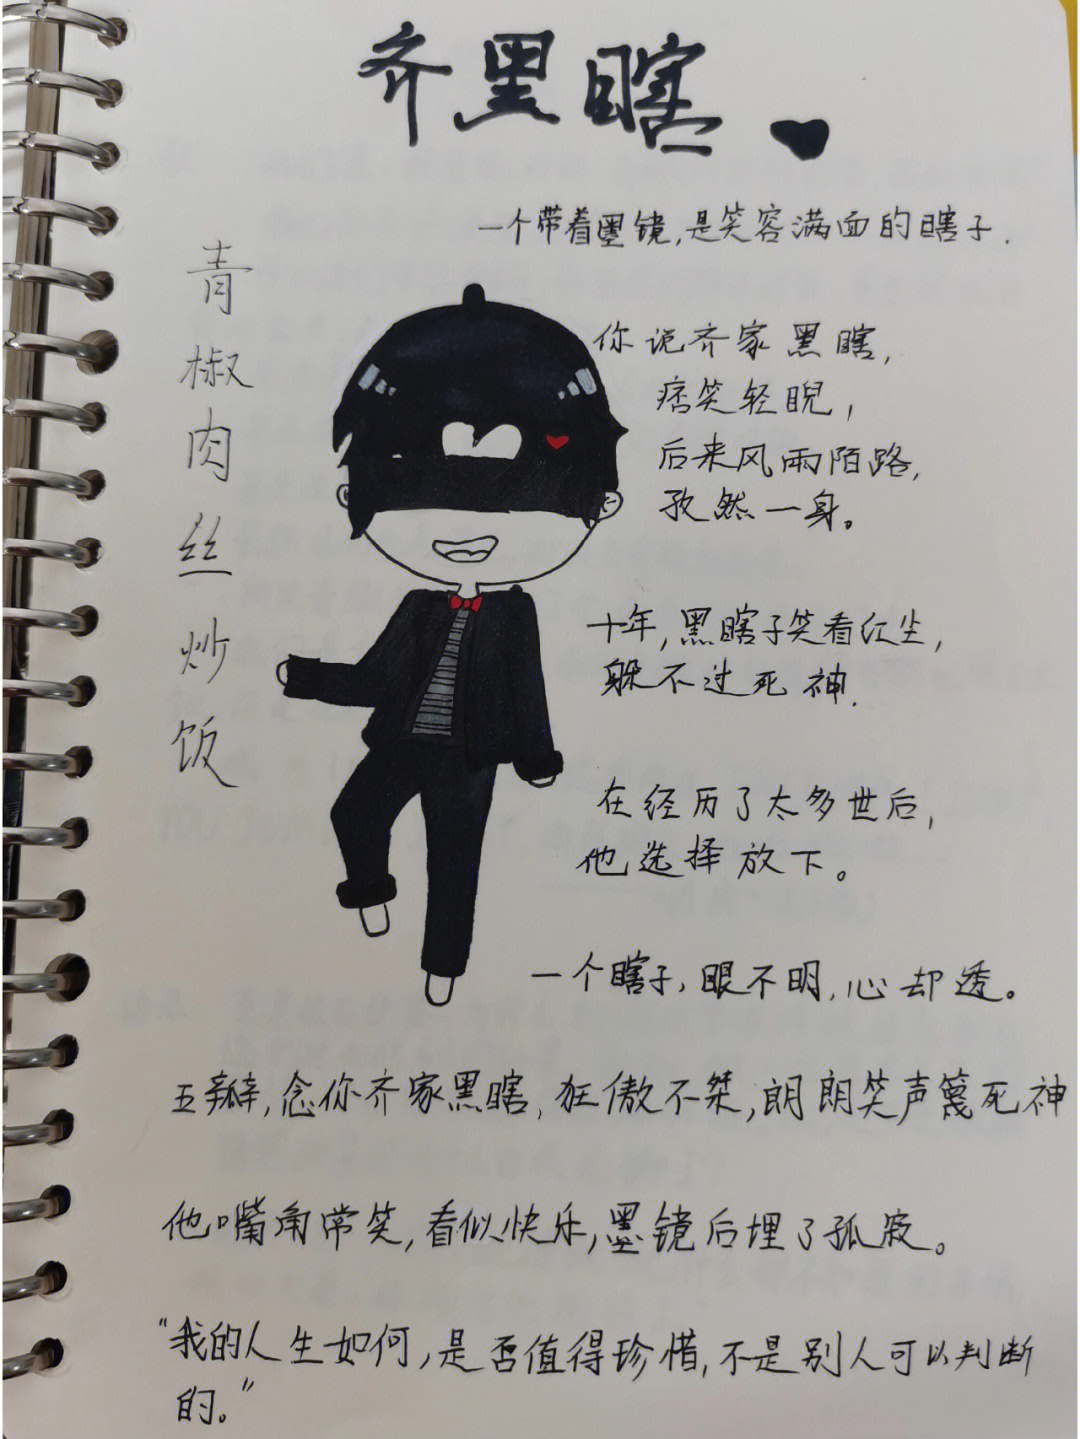 齐黑瞎
一个带着墨镜,是笑容满面的瞎子.
青椒肉丝炒饭
你说齐家黑瞎,
痞笑轻睨,
后来风雨陌路,
孜然一身。
十年,黑瞎子笑看红尘,
躲不过死神.
在经历了太多世后,
他选择放下。
一个瞎子,眼不明,心却透。
五瓣,念你齐家黑瞎,狂傲不桀,朗朗笑声蔑死神
他嘴角常笑,看似快乐,墨镜后埋了孤寂。
"我的人生如何,是否值得珍惜,不是别人可以判断
的。"